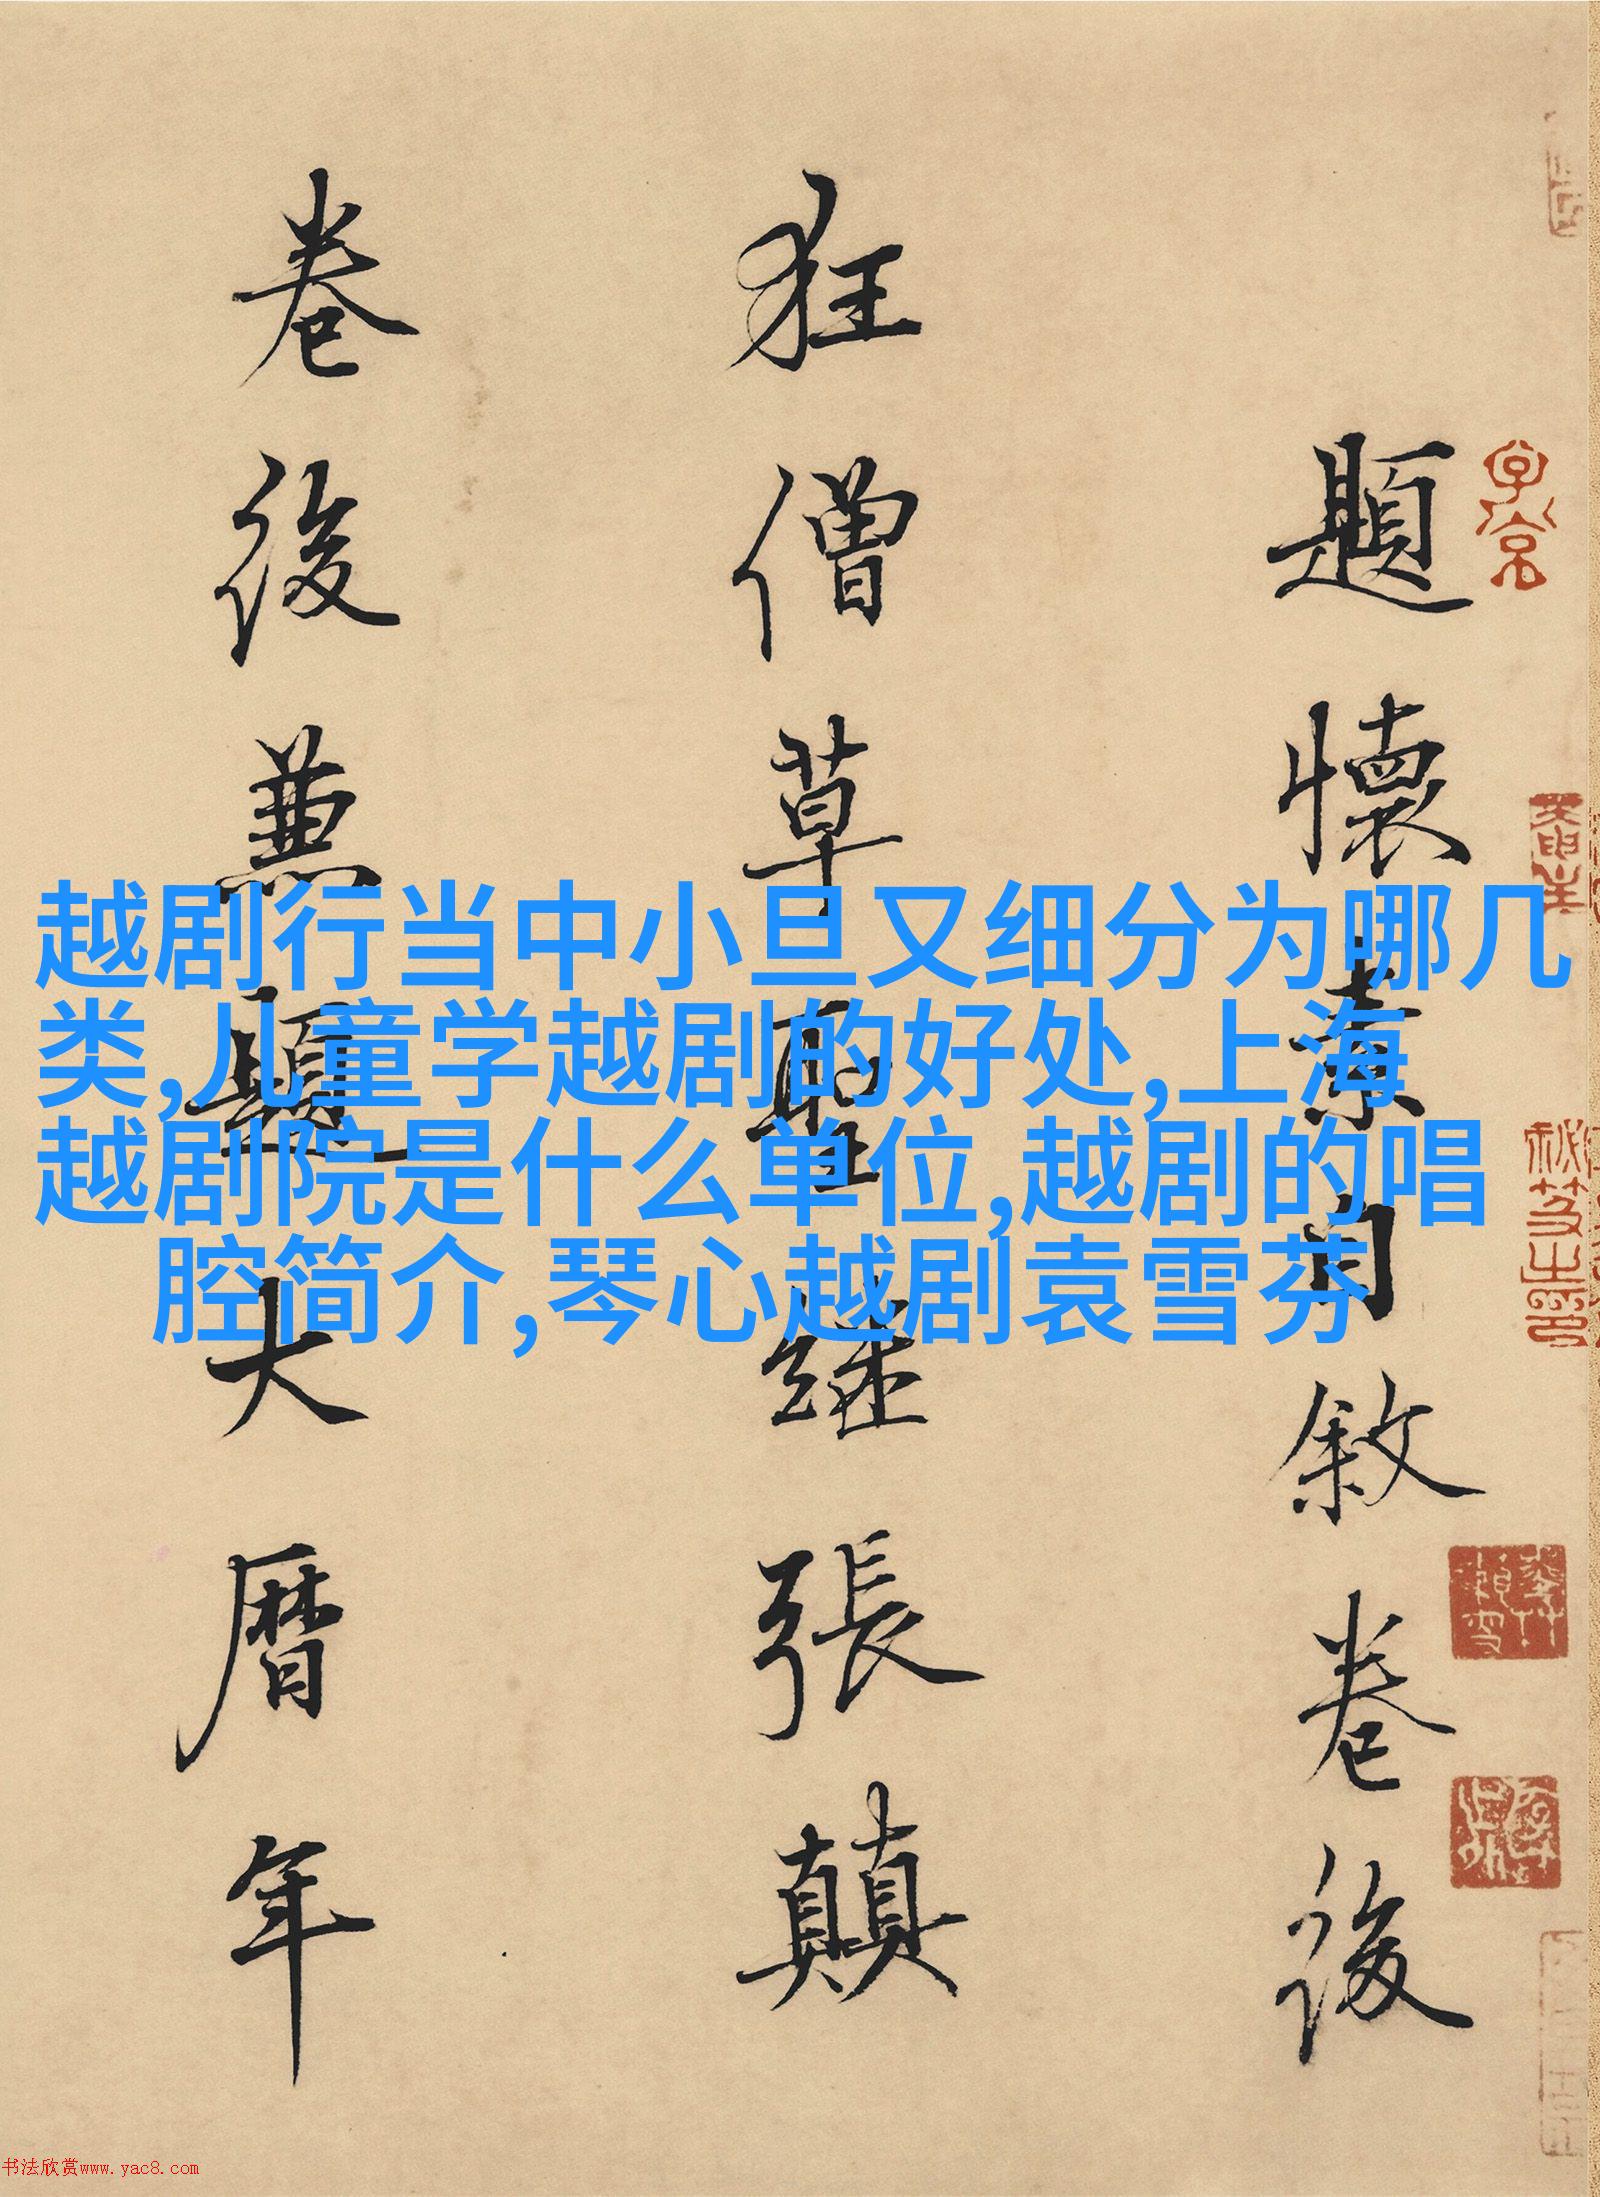 題懷素自敘卷後
狂僧草聖繼張顛
卷後兼題大曆年
越剧行当中小旦又细分为哪几
类,儿童学越剧的好处,上海
越剧院是什么单位,越剧的唱
腔简介,琴心越剧袁雪芬
书法欣赏www.yac8.com